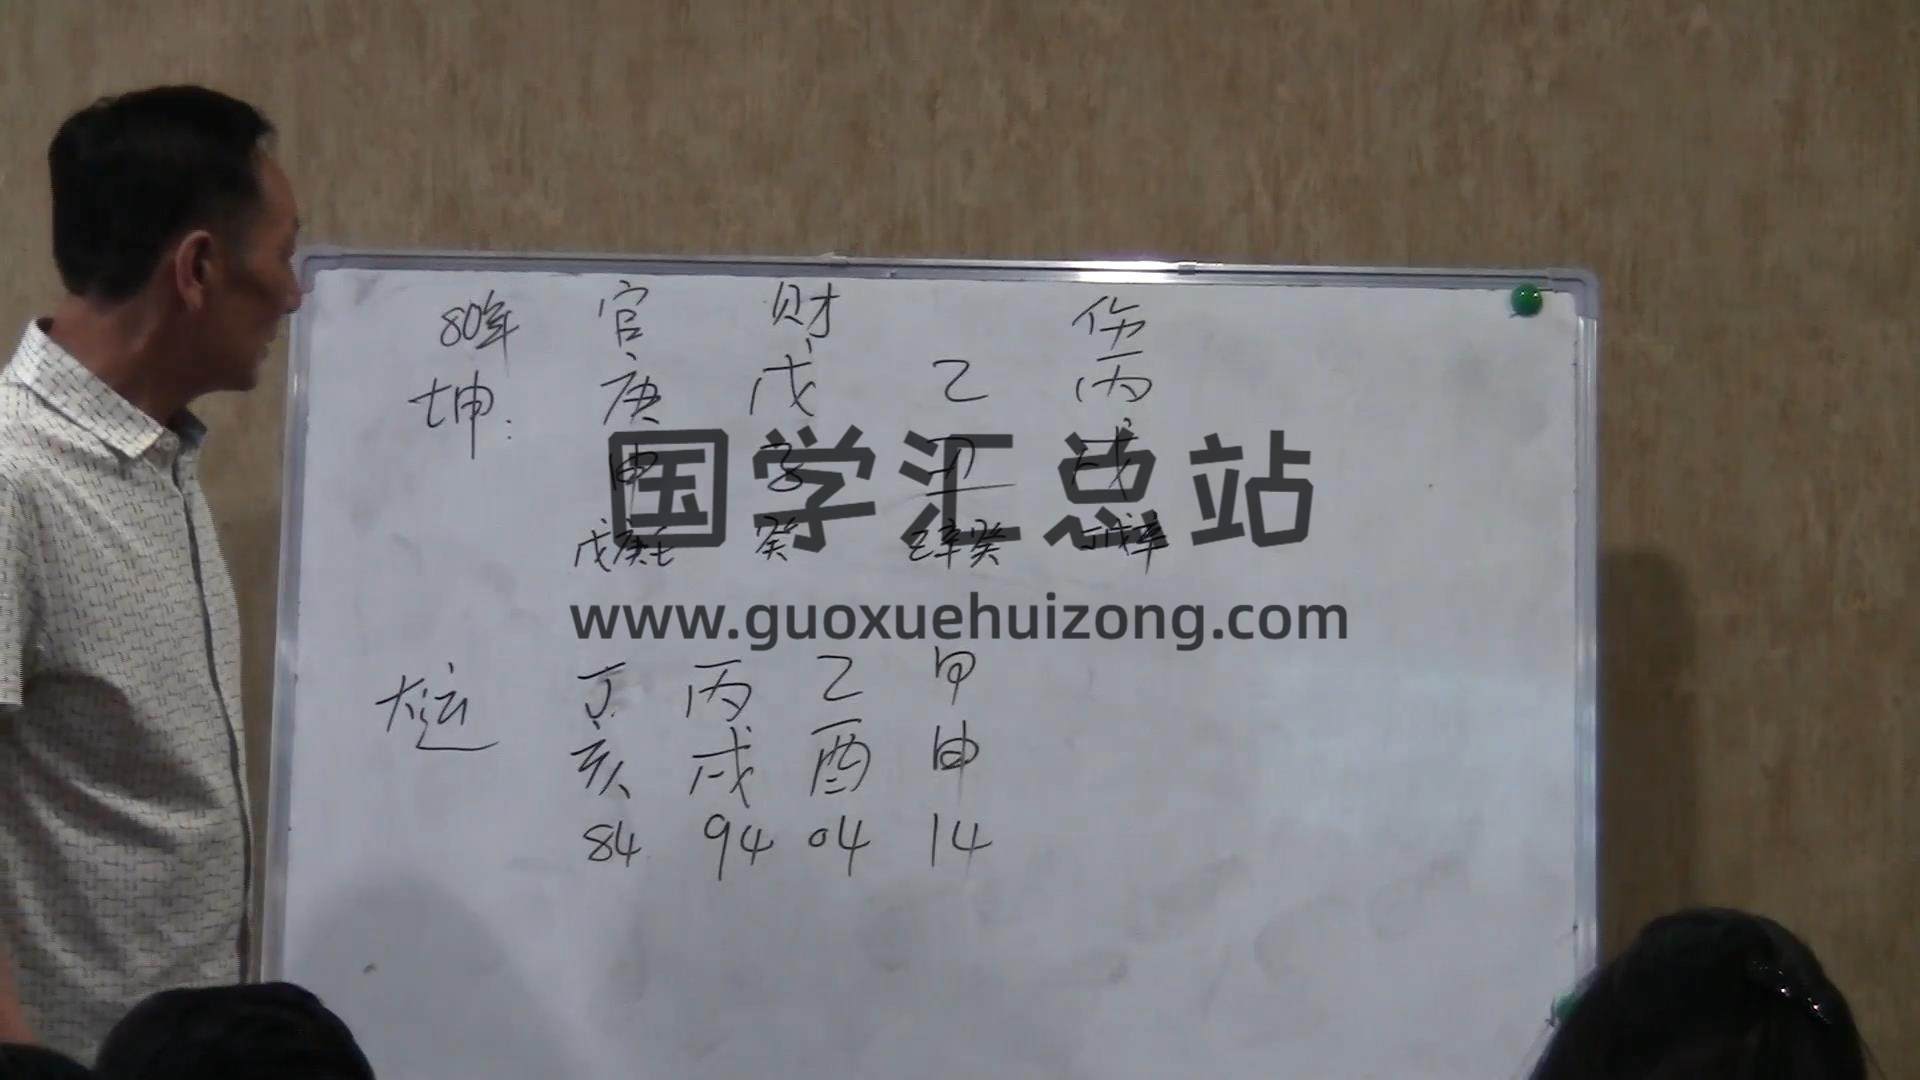 80年 官 财 伤
坤: 庚 戊 乙 丙
申 子 丑 戌
国学汇总站
戊庚壬 癸 己辛癸 丁戊辛
www.guoxuehuizong.com
大运 丁 丙 乙 甲
亥 戌 酉 申
84 94 04 14